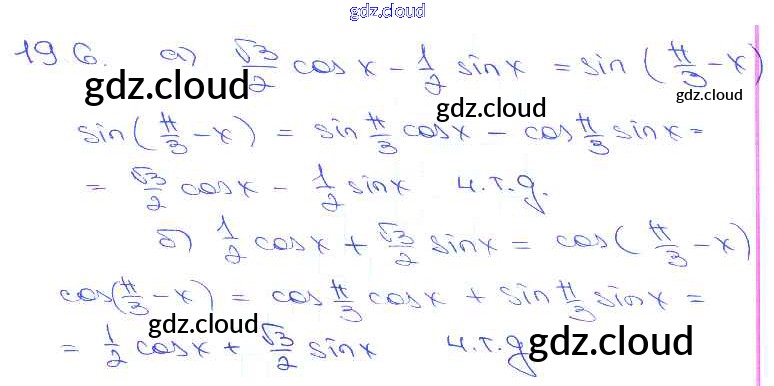 gdz.cloud
19.6. а) √3/2 cos x − 1/2 sin x = sin (π/3 − x)
gdz.cloud gdz.cloud gdz.cloud
sin (π/3 − x) = sin π/3 cos x − cos π/3 sin x =
= √3/2 cos x − 1/2 sin x ч.т.д.
б) 1/2 cos x + √3/2 sin x = cos (π/3 − x)
cos (π/3 − x) = cos π/3 cos x + sin π/3 sin x =
gdz.cloud gdz.cloud
= 1/2 cos x + √3/2 sin x ч.т.д